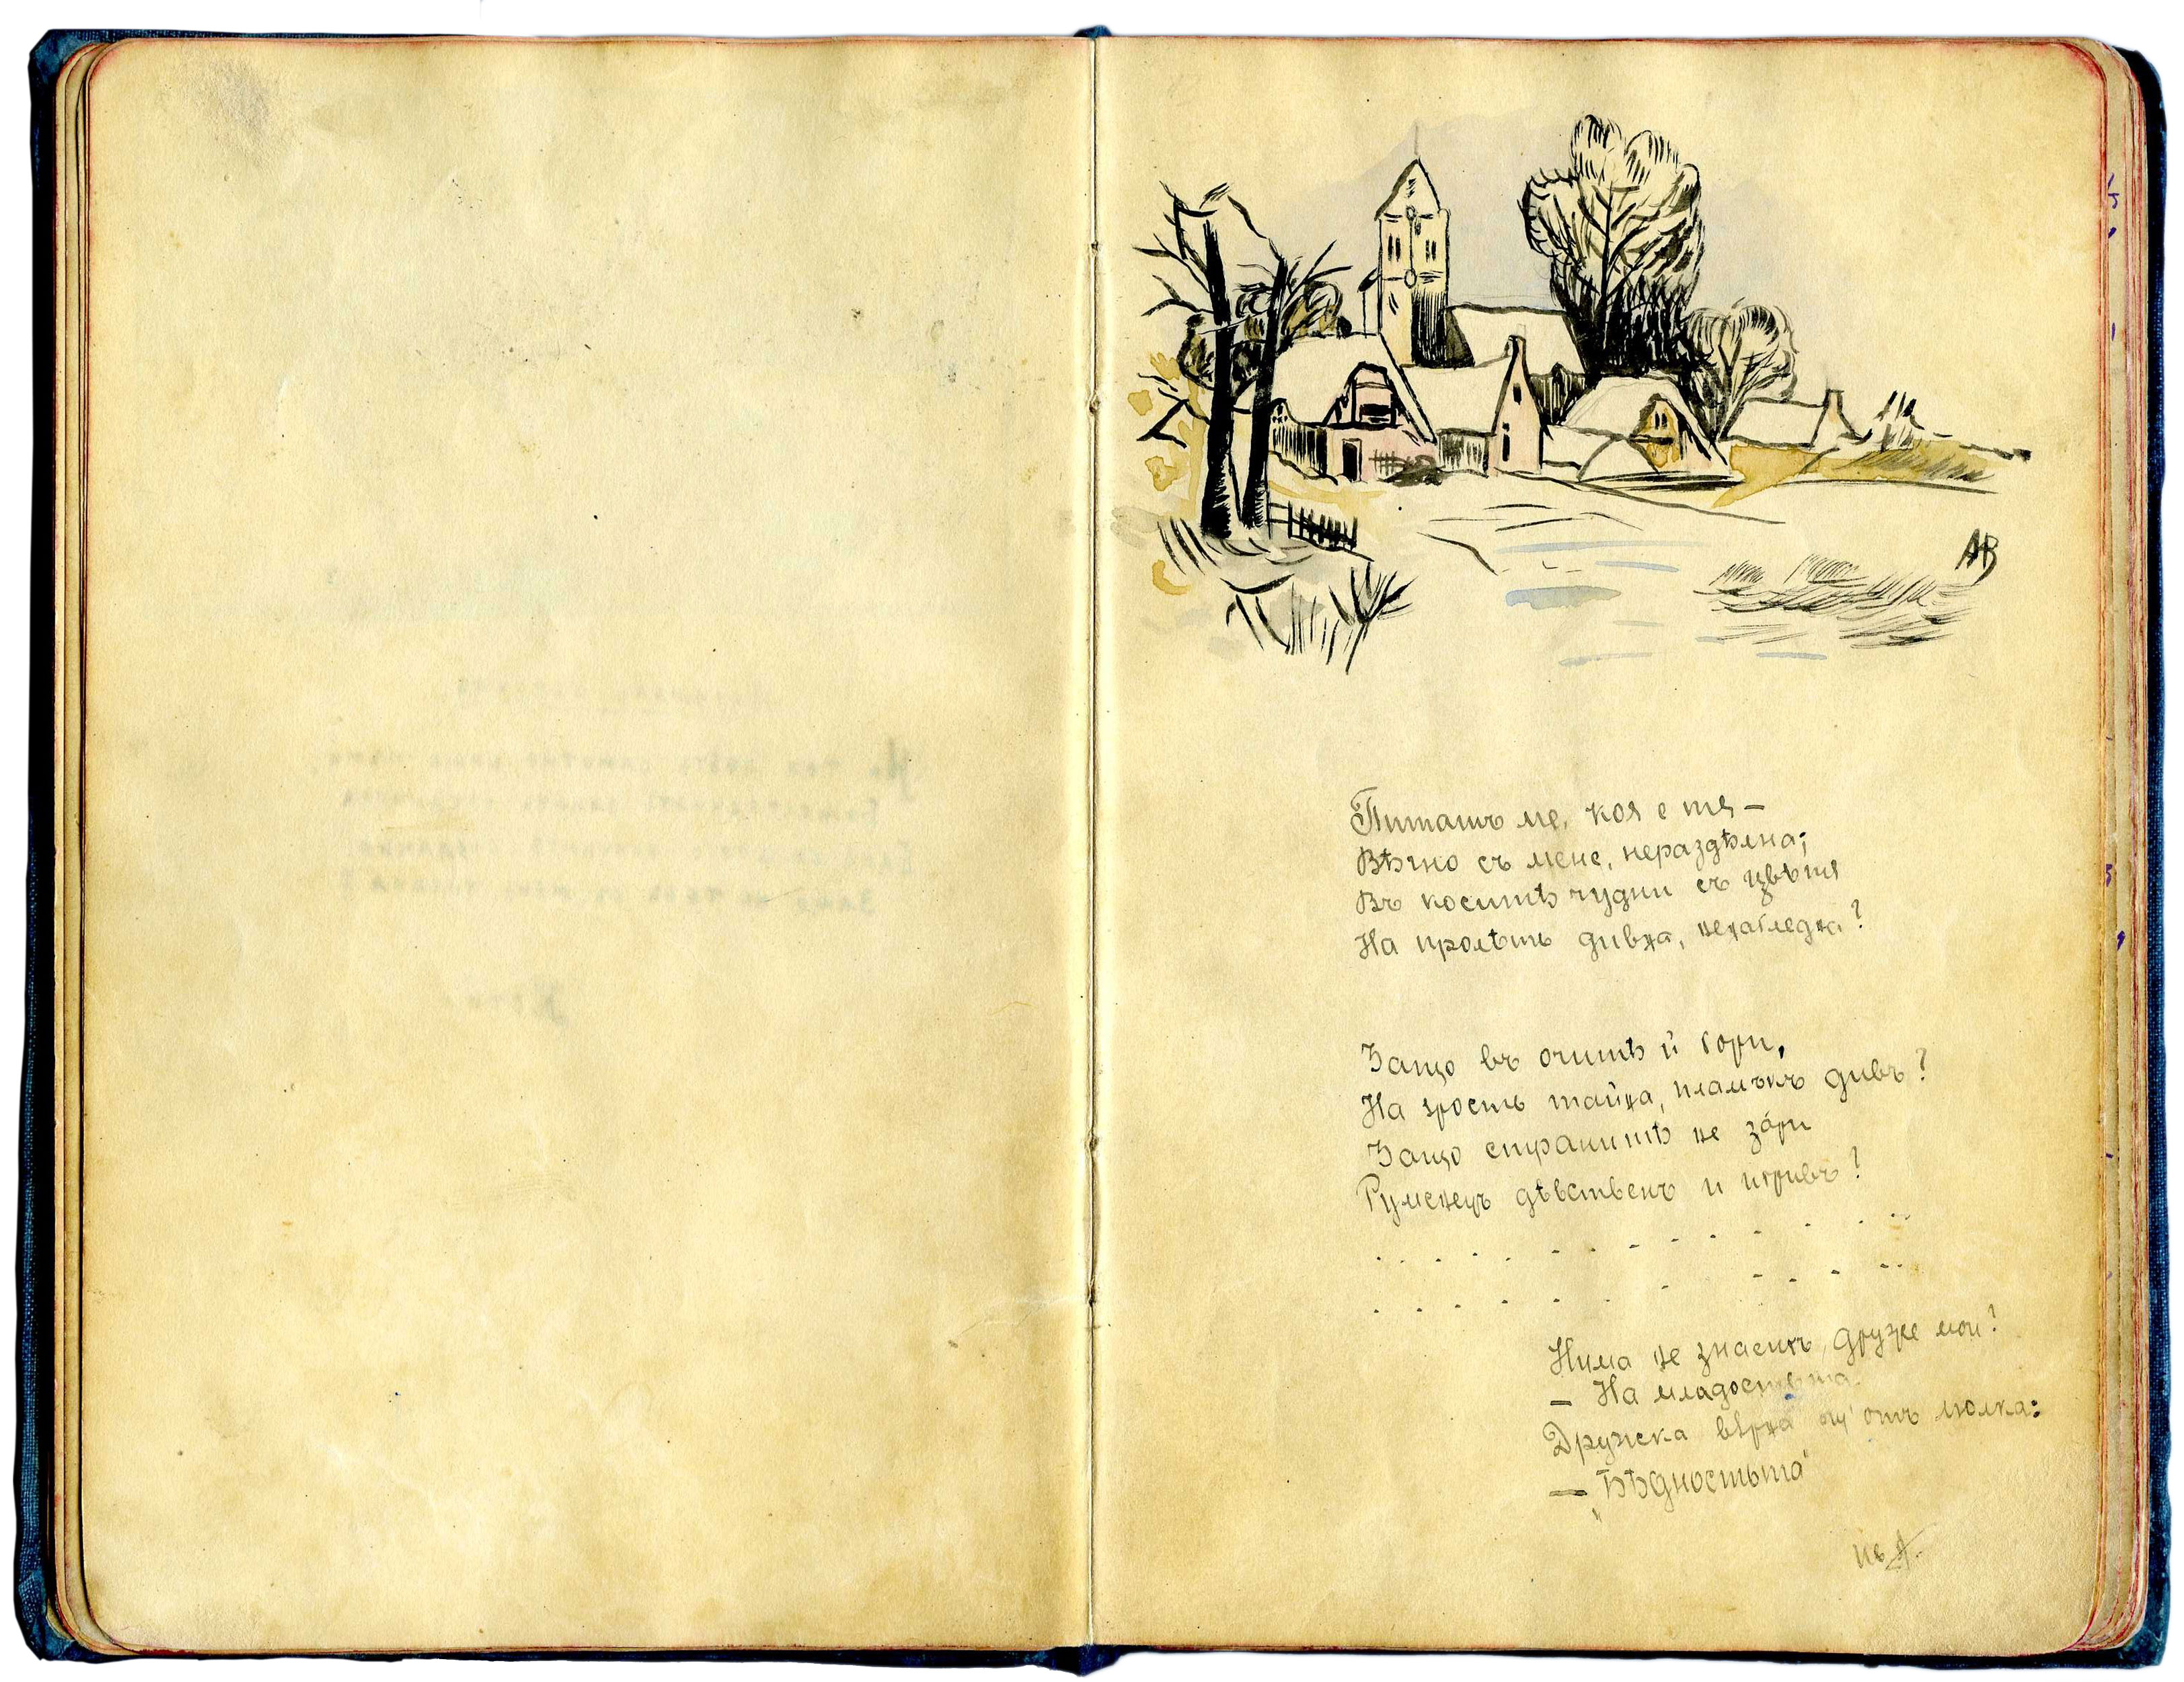 АВ
Питашъ ме, коя е тя —
Вѣчно съ мене, нераздѣлна;
Въ коситѣ чудни съ цвѣтя
На пролѣть дивна, ненагледна?
Защо въ очитѣ й гори,
На ярость тайна, пламъкъ дивъ?
Защо странитѣ не зари
Руменецъ дѣвственъ и игривъ?
. . . . . . . . . . . . . .
. . . . . . . . . . . .
Нима не знаешъ, друже мои?
— На младостьта
Дружка вѣрна отъ люлка:
— „Бѣдностьта"